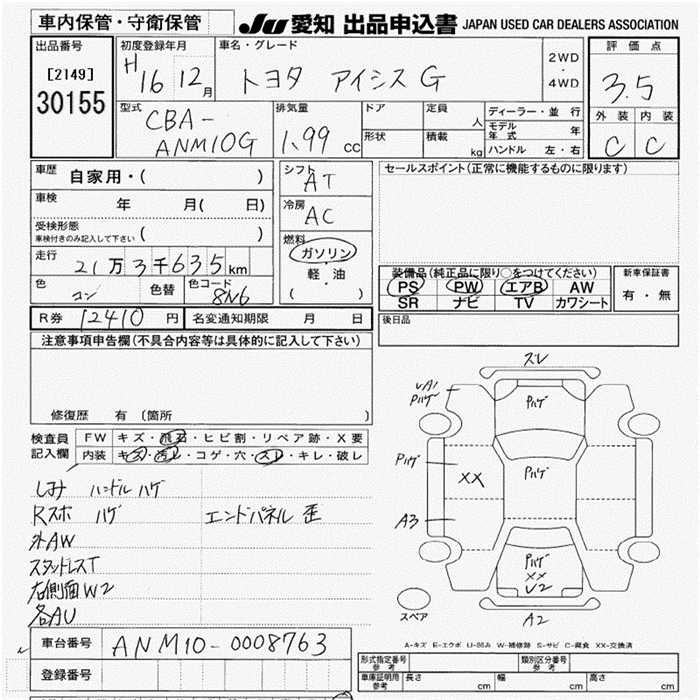 車内保管・守衛保管
JU 愛知 出品申込書 JAPAN USED CAR DEALERS ASSOCIATION
出品番号
[2149]
30155
初度登録年月
H16 12月
車名・グレード
トヨタ アイシス G
2WD
・
4WD
評価点
3.5
外装 内装
C C
型式
CBA-
ANM10G
排気量
1.99 cc
ドア
形状
定員 人
積載 kg
ディーラー・並行
モデル年式 年
ハンドル 左・右
車歴 自家用・( )
車検 年 月( 日)
受検形態
車検付きのみ記入して下さい ( )
走行 21万3千635km
色 コン 色替 色コード 8N6
シフト
AT
冷房
AC
燃料
ガソリン
軽・油
( )
セールスポイント(正常に機能するものに限ります)
装備品(純正品に限り○をつけてください)
PS PW エアB AW
SR ナビ TV カワシート
新車保証書
有・無
R券 12410円 名変通知期限 月 日
後日品
注意事項申告欄(不具合内容等は具体的に記入して下さい)
修復歴 有 〔箇所 〕
検査員
記入欄
FW キズ・飛石・ヒビ割・リペア跡・X要
内装 キズ・汚レ・コゲ・穴・スレ・キレ・破レ
しみ ハンドルハゲ
Rスポ ハゲ エンドパネル歪
外AW
スタッドレスT
右側面W2
各AU
スレ
UA1
Pハゲ
Pハゲ
Pハゲ
XX
Pハゲ
A3
Pハゲ
XX
U2
A2
スペア
A-キズ E-エクボ U-凹み W-補修跡 S-サビ C-腐食 XX-交換済
車台番号 ANM10-0008763
登録番号
形式指定番号
参考
類別区分番号
参考
車庫証明用
参考
長さ cm 幅 cm 高さ cm